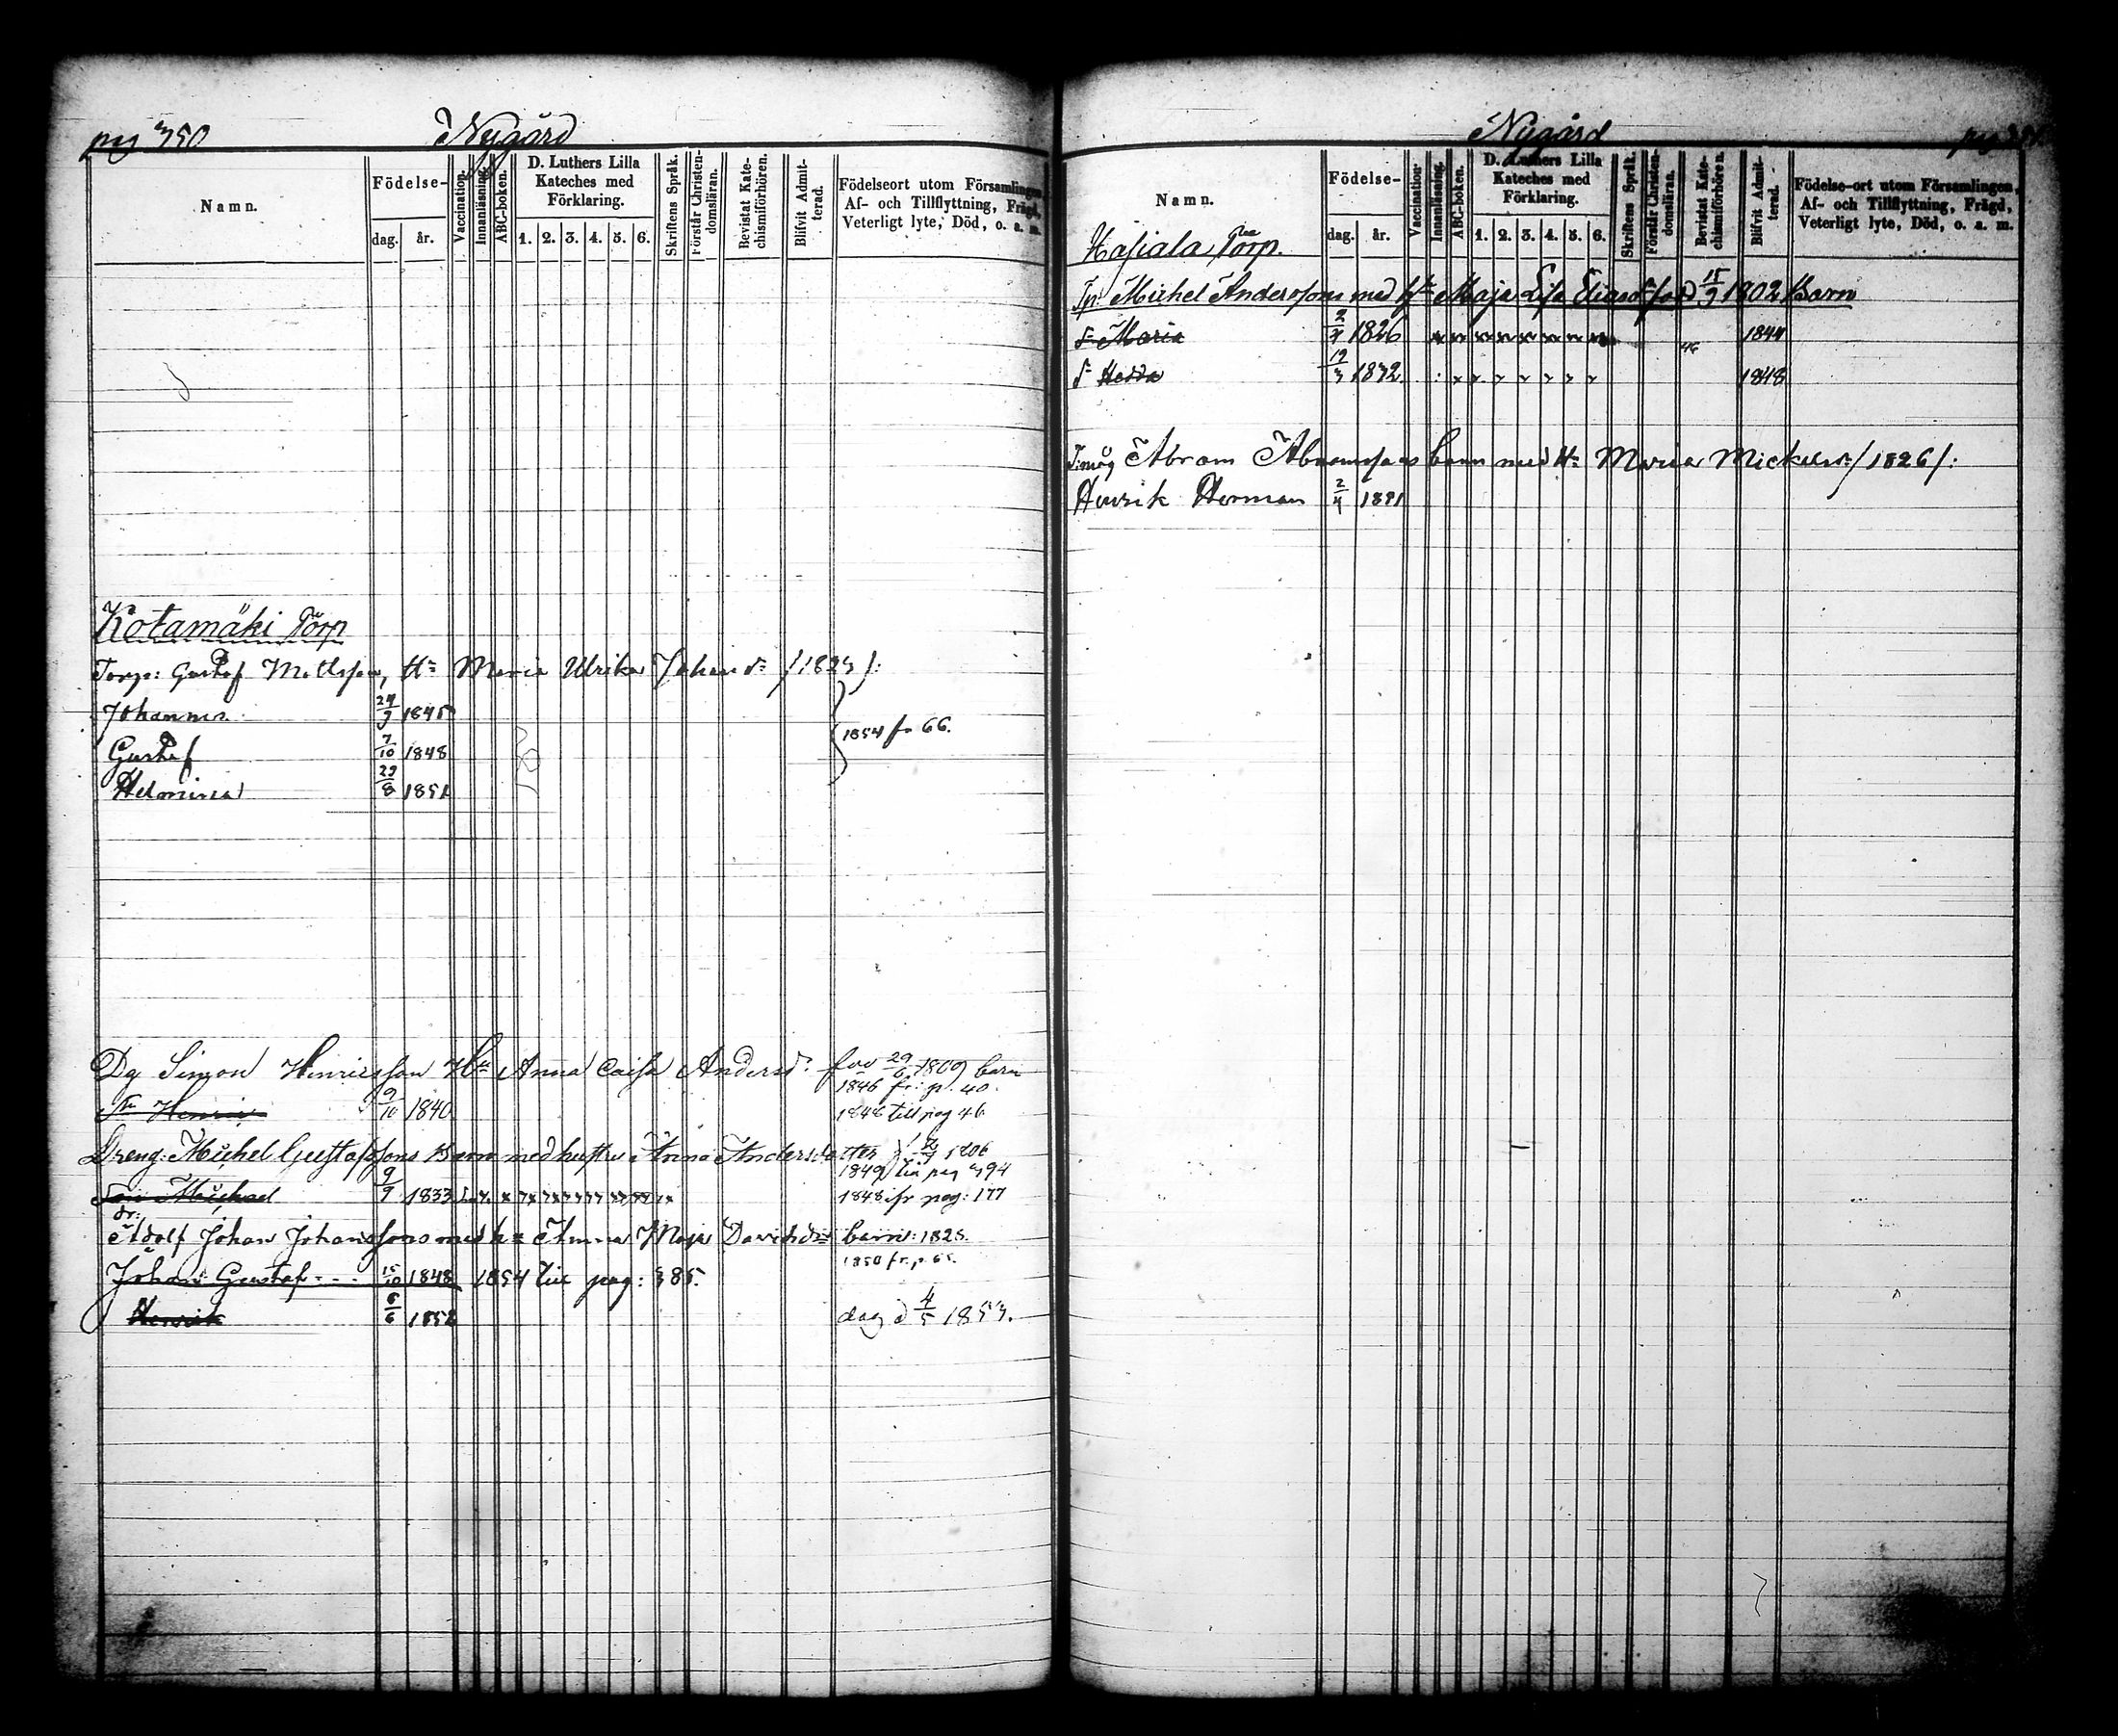 pag 350
Nygård
Namn.
Födelse-
dag. år.
Vaccination.
Innanläsning.
ABC-boken.
D. Luthers Lilla
Kateches med
Förklaring.
1. 2. 3. 4. 5. 6.
Skriftens Språk.
Förstår Christen-
domsläran.
Bevistat Kate-
chismiförhören.
Blifvit Admit-
terad.
Födelseort utom Församlingen,
Af- och Tillflyttning, Frägd,
Veterligt lyte, Död, o. a. m.
Kotamäki Torp
Torp: Gustaf Mattsson, H= Maria Ulrika Johansd= /1823/:
Johannes 24/9 1845
1854 fr 66.
Gustaf 7/10 1848
Helmina 29/8 1851
Dg Simon Henricsson Hu Anna Caisa Andersd: född 29/6 1809 barn
1846 fr: p. 40.
Henric 9/10 1840
1846 till pag 46
Dreng: Michel Gustafssons Barn med hustru Anna Andersdotter 1806
1849 till pag 394
Son Michael 9/9 1833
1848 ifr pag: 177
dr:
Adolf Johan Johanssons med h= Anna Maja Davidsd= barn: 1825.
1850 fr. p. 65.
Johan Gustaf 15/10 1848 1854 till pag: 385.
Henrik 6/6 1852
dog d 4/5 1853.
Nygård
Namn.
Födelse-
dag. år.
Vaccination.
Innanläsning.
ABC-boken.
D. Luthers Lilla
Kateches med
Förklaring.
1. 2. 3. 4. 5. 6.
Skriftens Språk.
Förstår Christen-
domsläran.
Bevistat Kate-
chismiförhören.
Blifvit Admit-
terad.
Födelse-ort utom Församlingen,
Af- och Tillflyttning, Frägd,
Veterligt lyte, Död, o. a. m.
Torp.
Tp: Michel Anderssons med Hu Maja Lisa Eliasd: född 15/9 1802 Barn
d= Maria 1826 1844
46
d= Hedda 19/3 1832 1848
Abram Abramssons barn med H= Maria Mickelsd= /1826/:
Henrik Herman 2/4 1851